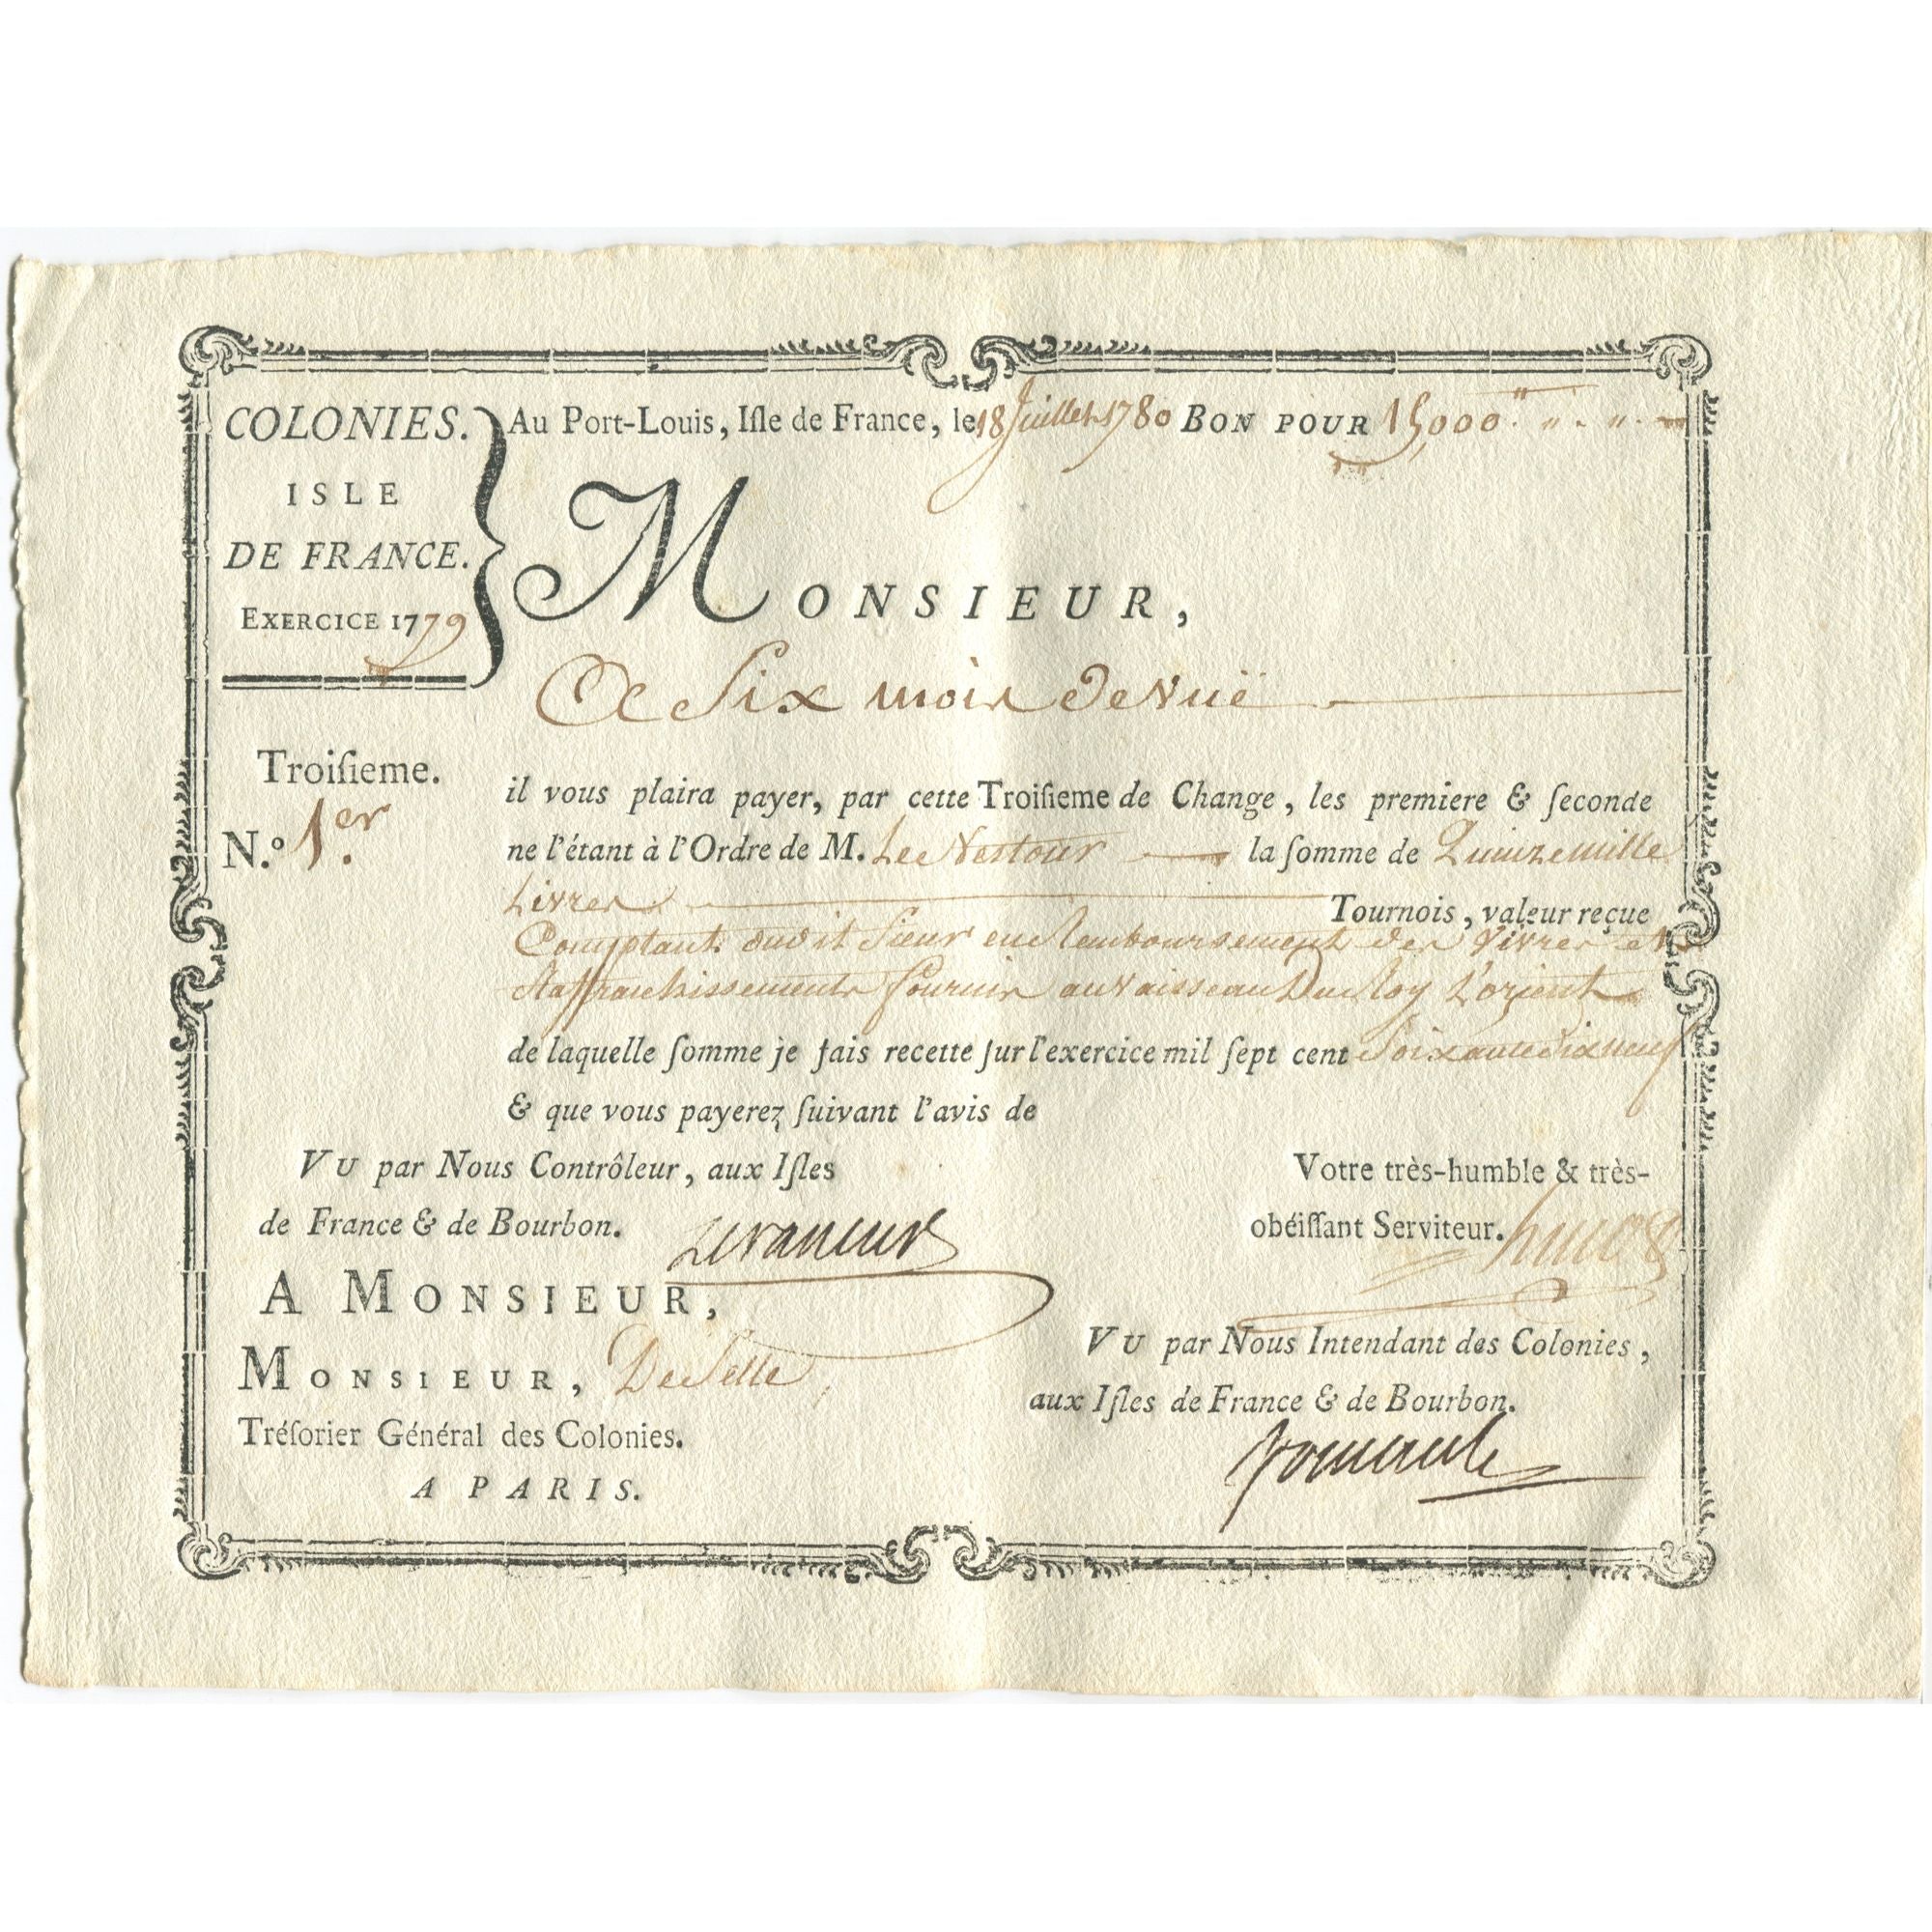 COLONIES.
ISLE
DE FRANCE.
EXERCICE 1779
Au Port-Louis, Iſle de France, le 18 Juillet 1780 BON POUR 15000
MONSIEUR,
A Six mois De Vuë
Troiſieme.
N.º 1er
il vous plaira payer, par cette Troiſieme de Change, les premiere & ſeconde
ne l'étant à l'Ordre de M. Le Nestour la ſomme de Quinze mille
Livres Tournois, valeur reçue
Comptant dudit Sieur en Remboursement des Vivres et
Raffraichissements fournis au Vaisseau Du Roy L'orient
de laquelle ſomme je fais recette ſur l'exercice mil ſept cent Soixante dix neuf
& que vous payerez ſuivant l'avis de
VU par Nous Contrôleur, aux Iſles
de France & de Bourbon.
Votre très-humble & très-
obéiſſant Serviteur.
A MONSIEUR,
MONSIEUR, De Selle,
Tréſorier Général des Colonies.
A PARIS.
VU par Nous Intendant des Colonies,
aux Iſles de France & de Bourbon.